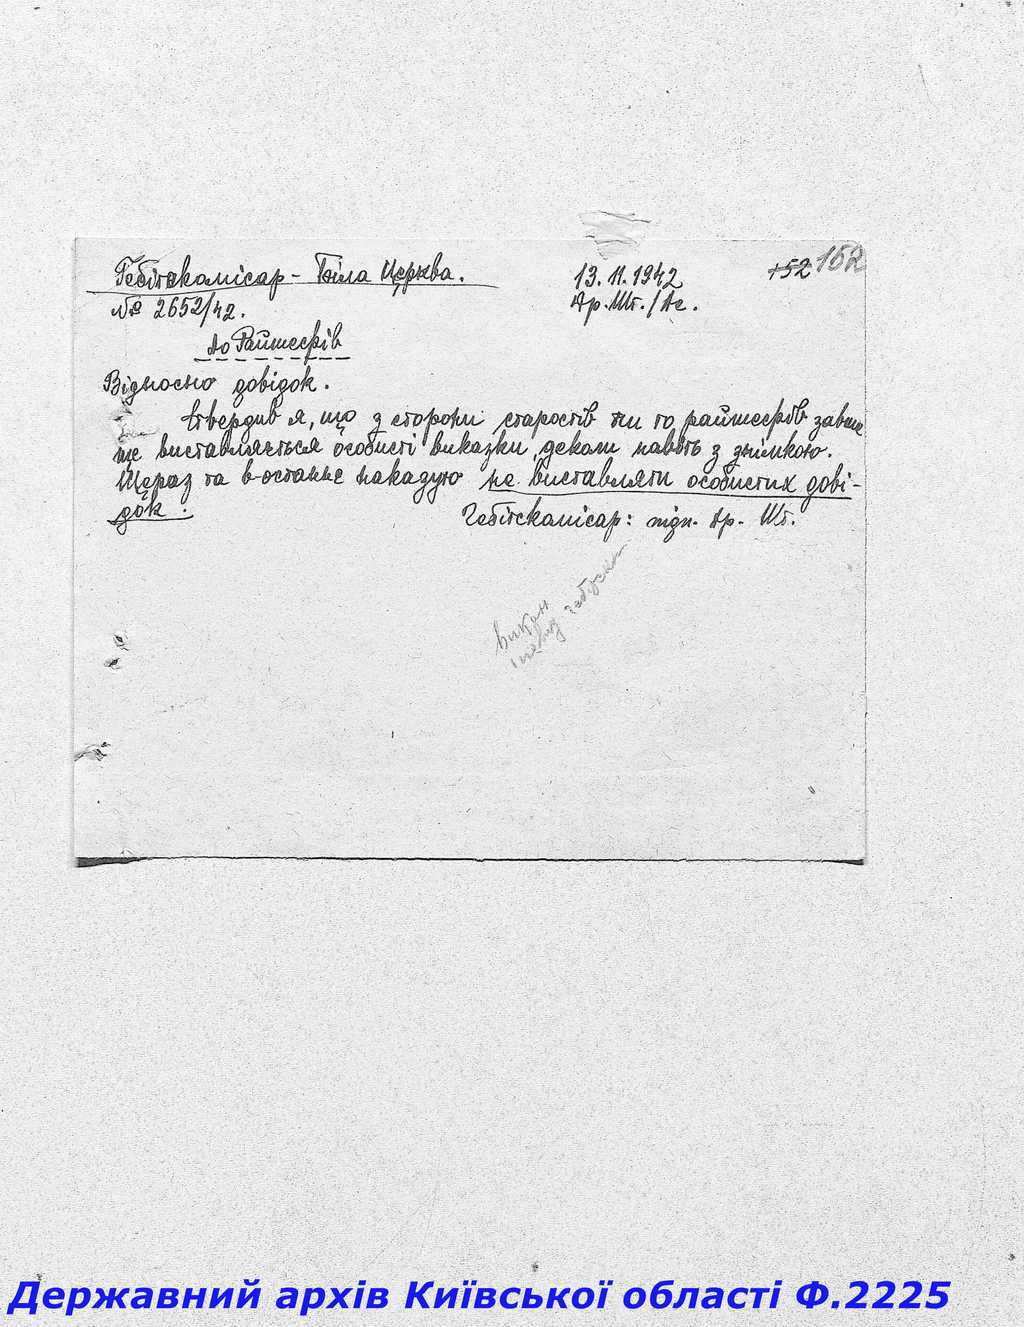 Гебітскомісар - Біла Церква.
13. 11. 1942
152 152
№ 2652/42.
Др. Шт./Ле.
До Райшефів
Відносно довідок.
Ствердив я, що з сторони старостів чи то райшефів завше
ще виставляється особисті виказки, декали навіть з знімкою.
Щераз та востаннє наказую не виставляти особистих дові-
док.
Гебітскомісар: підп. Др. Шт.
Державний архів Київської області Ф.2225